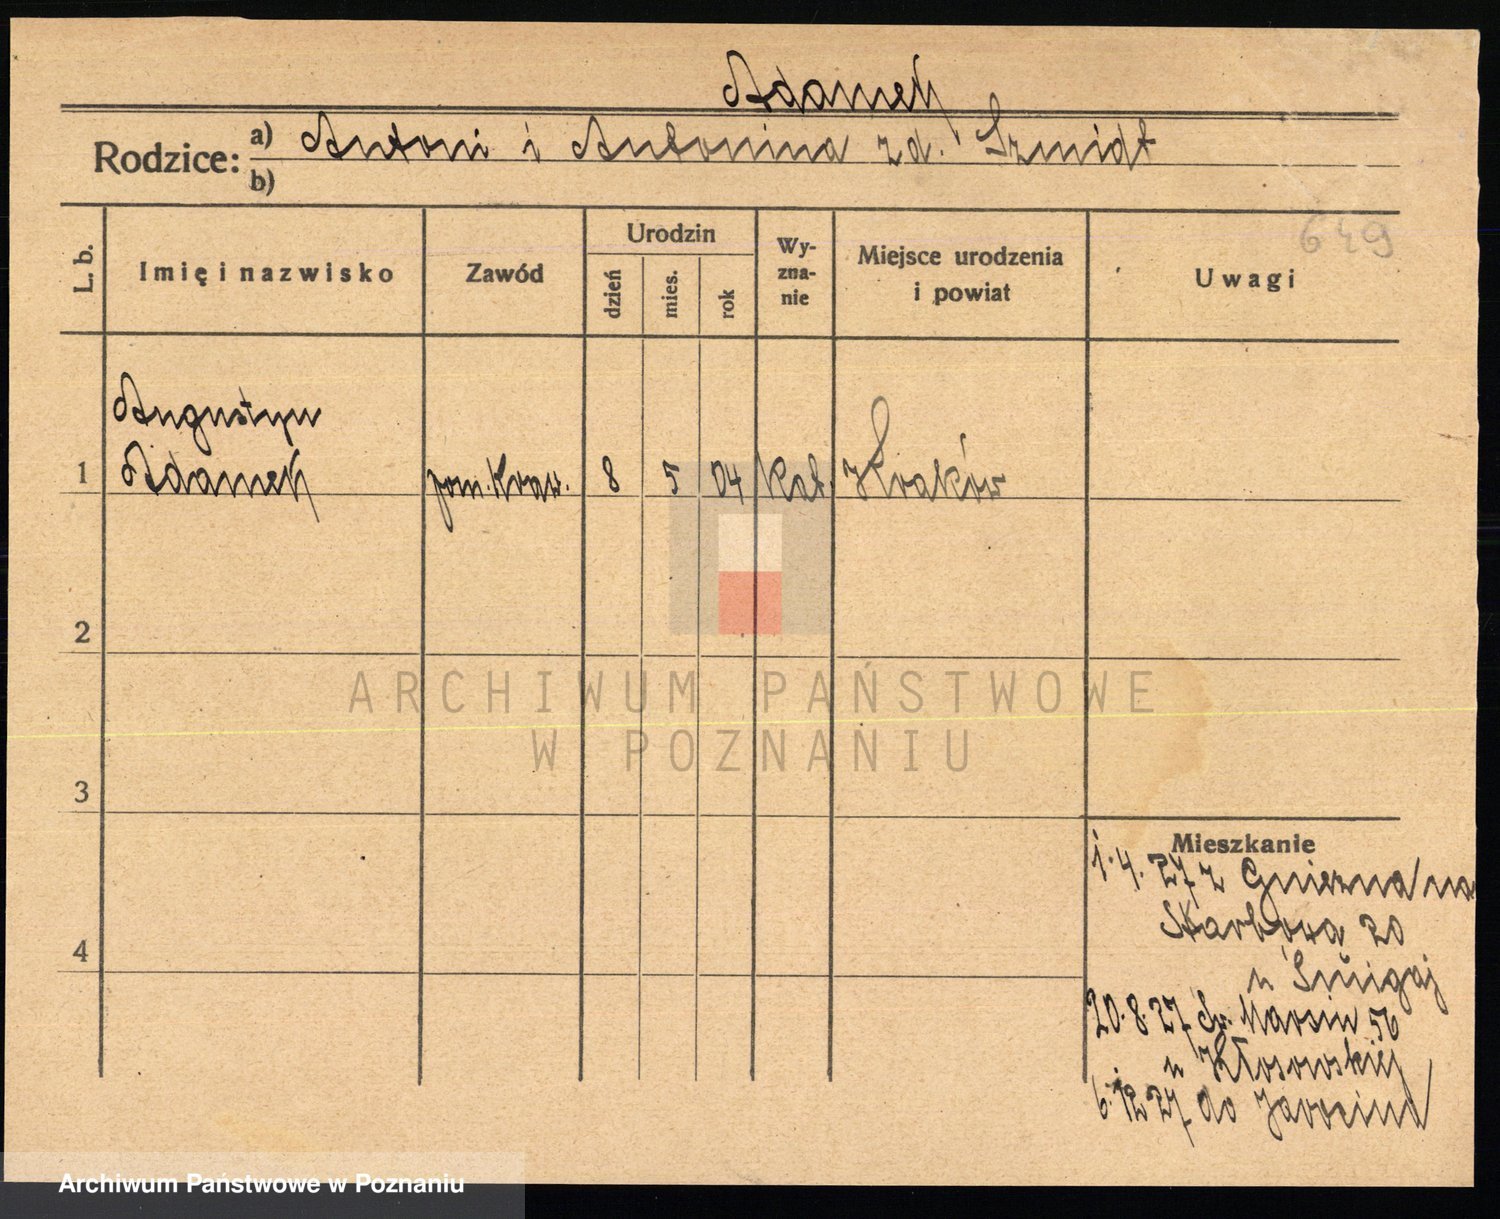 Adamek
Rodzice: a) Antoni i Antonina zd. Szmidt
b)
649
L. b.
Imię i nazwisko
Zawód
Urodzin
dzień
mies.
rok
Wy-
zna-
nie
Miejsce urodzenia
i powiat
Uwagi
Augustyn
1 Adamek pom. Kraw. 8 5 04 Kat. Kraków
2
ARCHIWUM PAŃSTWOWE
W POZNANIU
3
4
Mieszkanie
1.4.27 z Gniezna/na
Skarbowa 20
u Śmigaj
20.8.27 Św. Marcin 56
u Kłosowskiej
6.12.27 do Jarocina
Archiwum Państwowe w Poznaniu